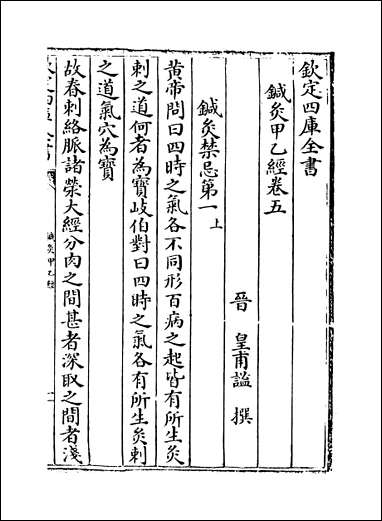 欽定四庫全書
鍼灸甲乙經卷五
晉 皇甫謐 撰
鍼灸禁忌第一上
黄帝問曰四時之氣各不同形百病之起皆有所生灸
刺之道何者為寶岐伯對曰四時之氣各有所生灸刺
之道氣穴為寶
故春刺絡脈諸滎大經分肉之間甚者深取之間者淺
鍼灸甲乙經